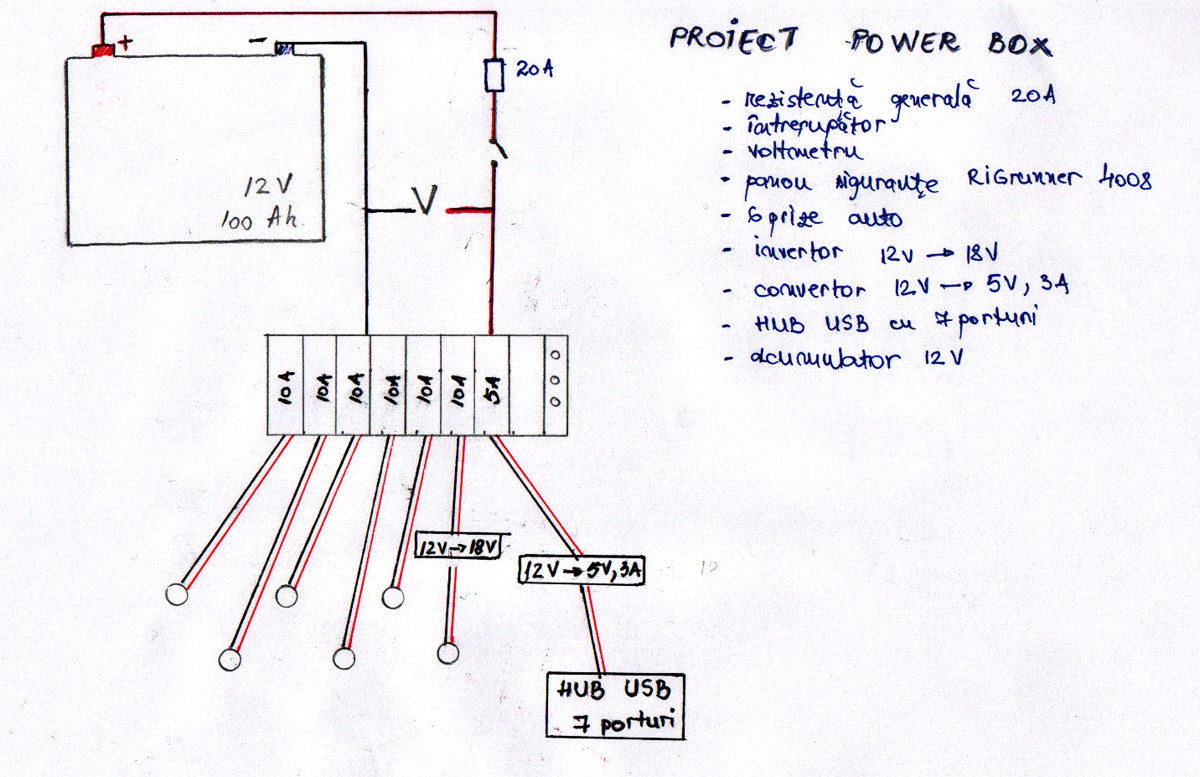 PROIECT POWER BOX
- rezistență generală 20A
- întrerupător
- voltmetru
- panou siguranțe RiGrunner 4008
- 6 prize auto
- invertor 12V → 18V
- convertor 12V → 5V, 3A
- HUB USB cu 7 porturi
- acumulator 12V
+
-
20A
12V
100 Ah.
V
10A
10A
10A
10A
10A
10A
5A
12V→18V
12V→5V,3A
HUB USB
7 porturi